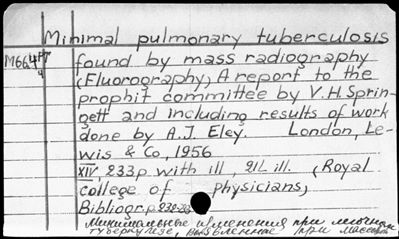 Minimal pulmonary tuberculosis
found by mass radiography
(Fluorography) A report to the
prophit committee by V.H.Sprin-
gett and including results of work
done by A.J. Eley. London, Le-
wis & Co, 1956
XIV, 233p with ill, 21L ill. (Royal
college of Physicians)
Bibliogr.p.
Минимальные изменения при легочном
туберкулезе, выявленные при массовой